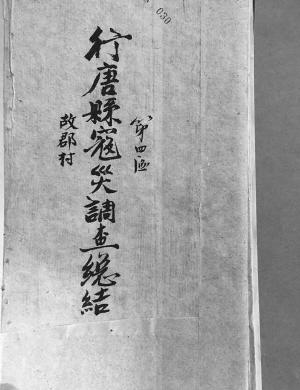 030
第四區
行唐縣寇災調查總結
故郡村